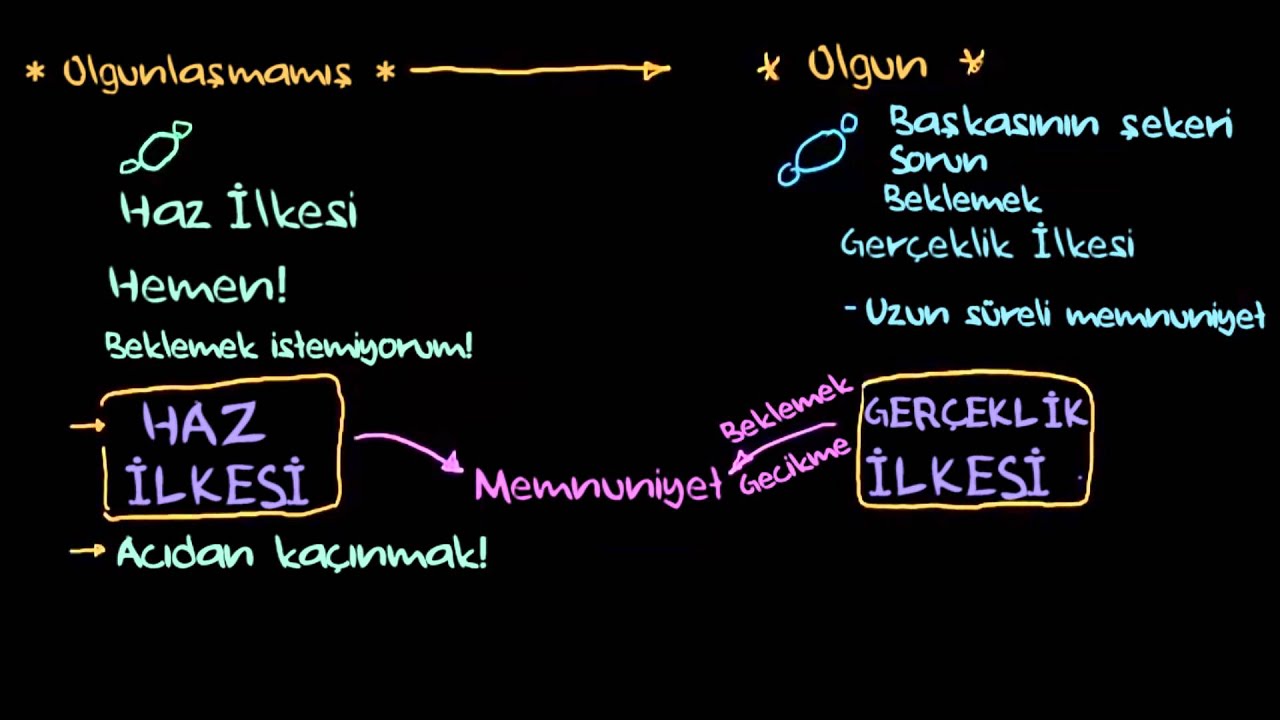 * Olgunlaşmamış *
Haz İlkesi
Hemen!
Beklemek istemiyorum!
HAZ
İLKESİ
Acıdan kaçınmak!
Memnuniyet
Beklemek
Gecikme
* Olgun *
Başkasının şekeri
Sorun
Beklemek
Gerçeklik İlkesi
- Uzun süreli memnuniyet
GERÇEKLİK
İLKESİ